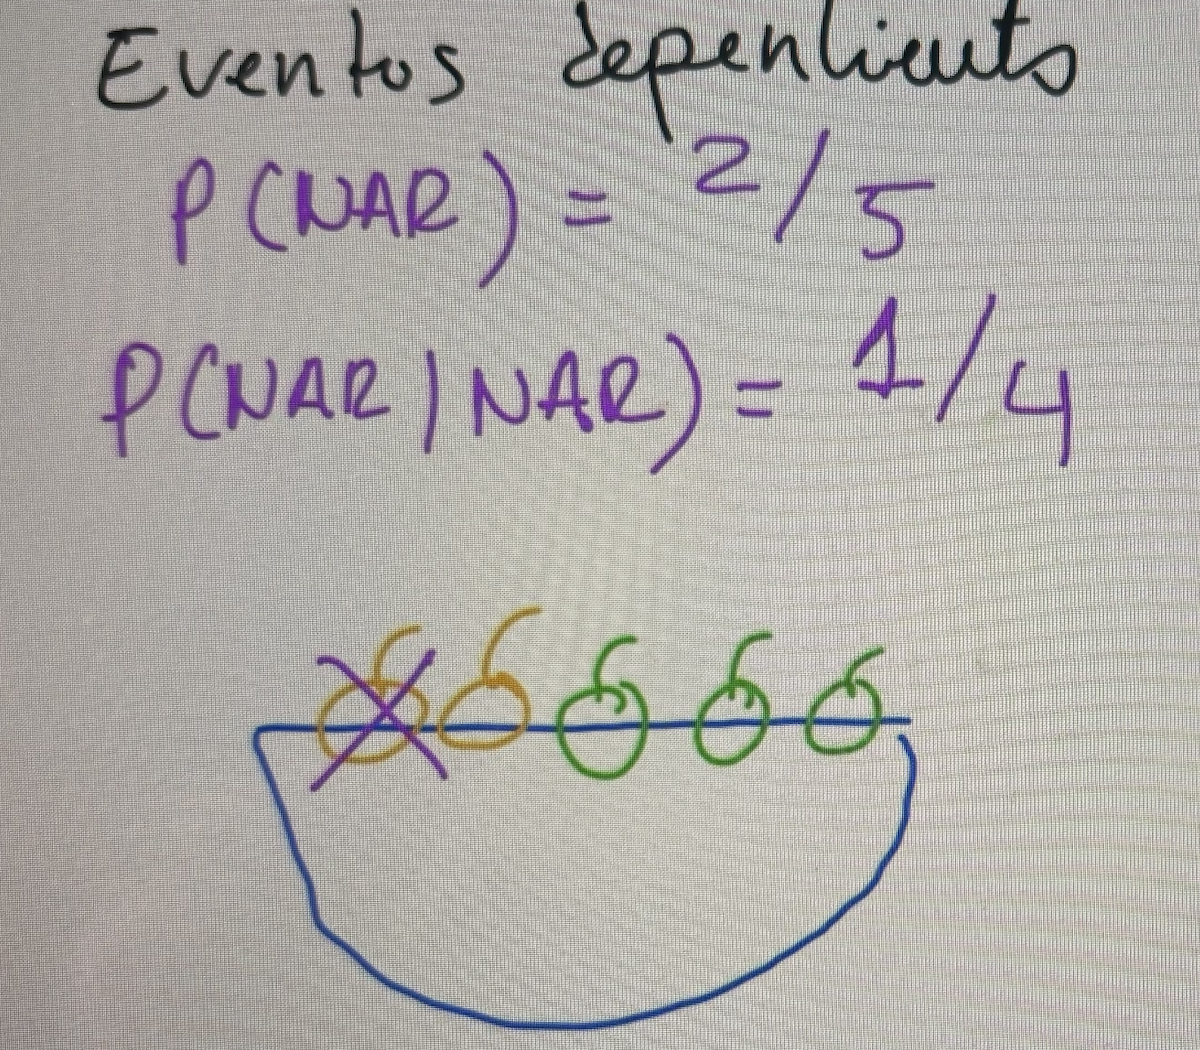 Eventos dependientes
P(NAR) = 2/5
P(NAR | NAR) = 1/4